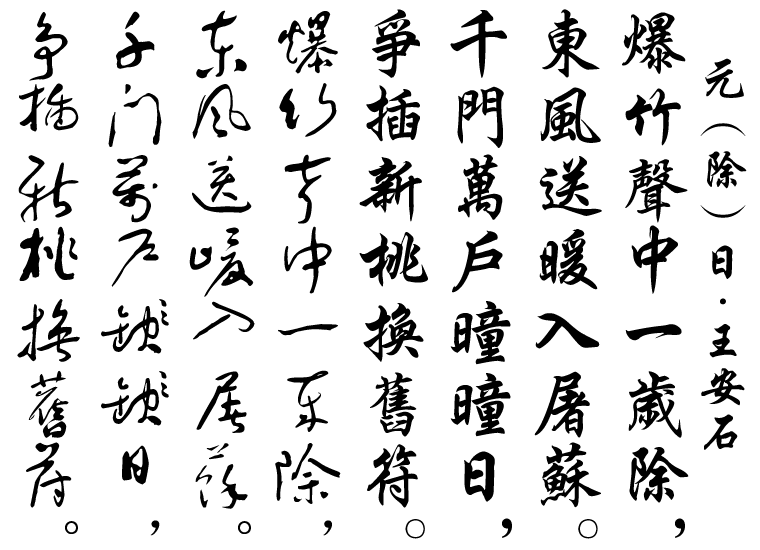 元（除）日・王安石
爆竹聲中一歲除，
東風送暖入屠蘇。
千門萬戶曈曈日，
爭插新桃換舊符。
爆竹声中一岁除，
东风送暖入屠蘇。
千门萬户日，
争插新桃換舊符。